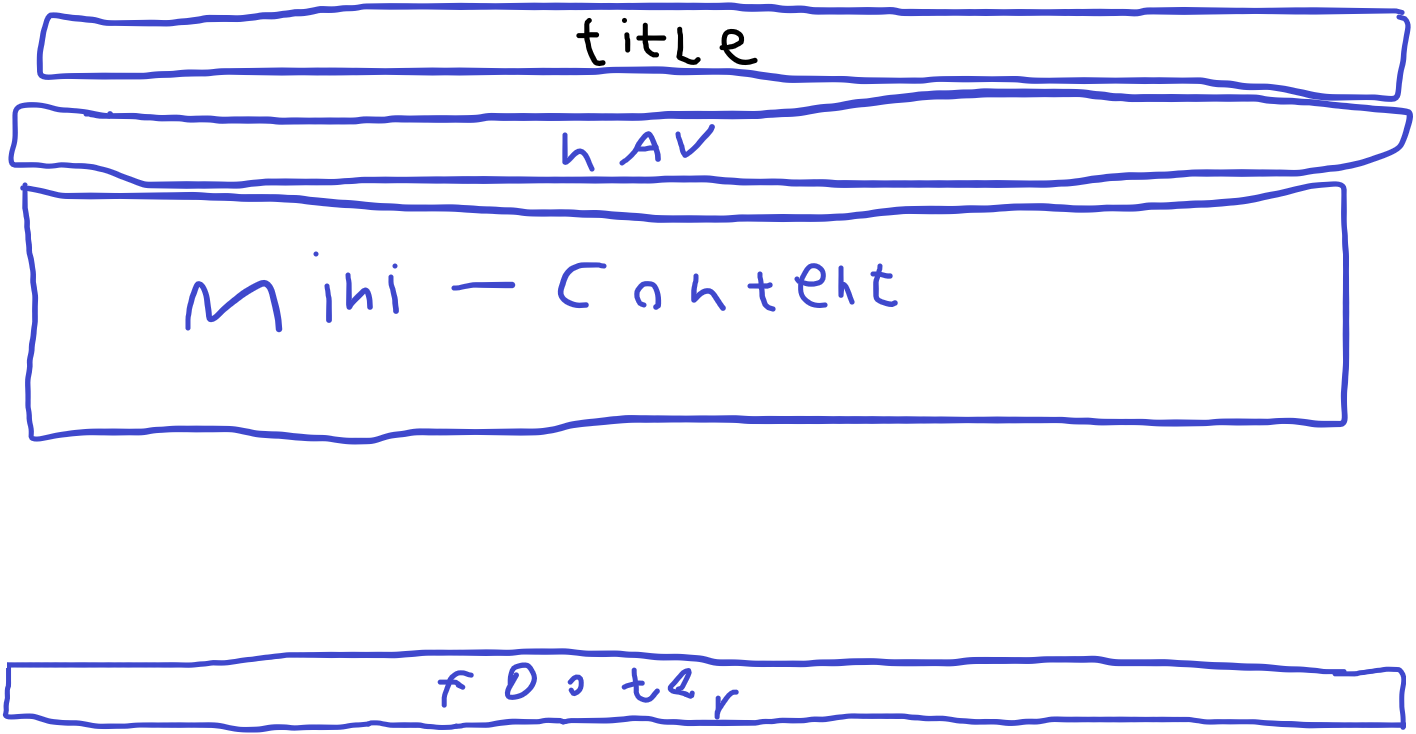 title
nAV
Mini - Content
footer